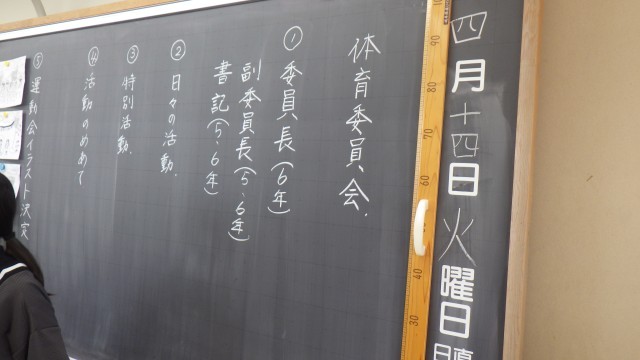 四月十四日火曜日
体育委員会.
① 委員長(6年)
副委員長(5・6年)
書記(5・6年)
② 日々の活動.
③ 特別活動.
④ 活動のめあて
⑤ 運動会イラスト決定
100
90
80
70
60
40
30